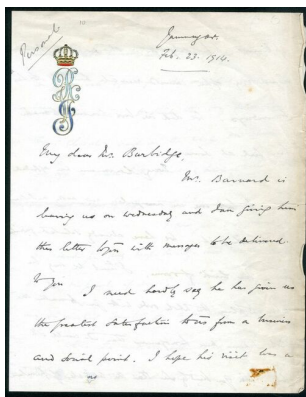 Personal
Jamnagar.
Feb. 23. 1914.
My dear Mr. Burbidge,
Mr. Barnard is
leaving us on Wednesday and I am giving him
this letter to you with messages to be delivered
to you
I need hardly say he has given us
the greatest satisfaction to us from a business
and social point. I hope his visit has a